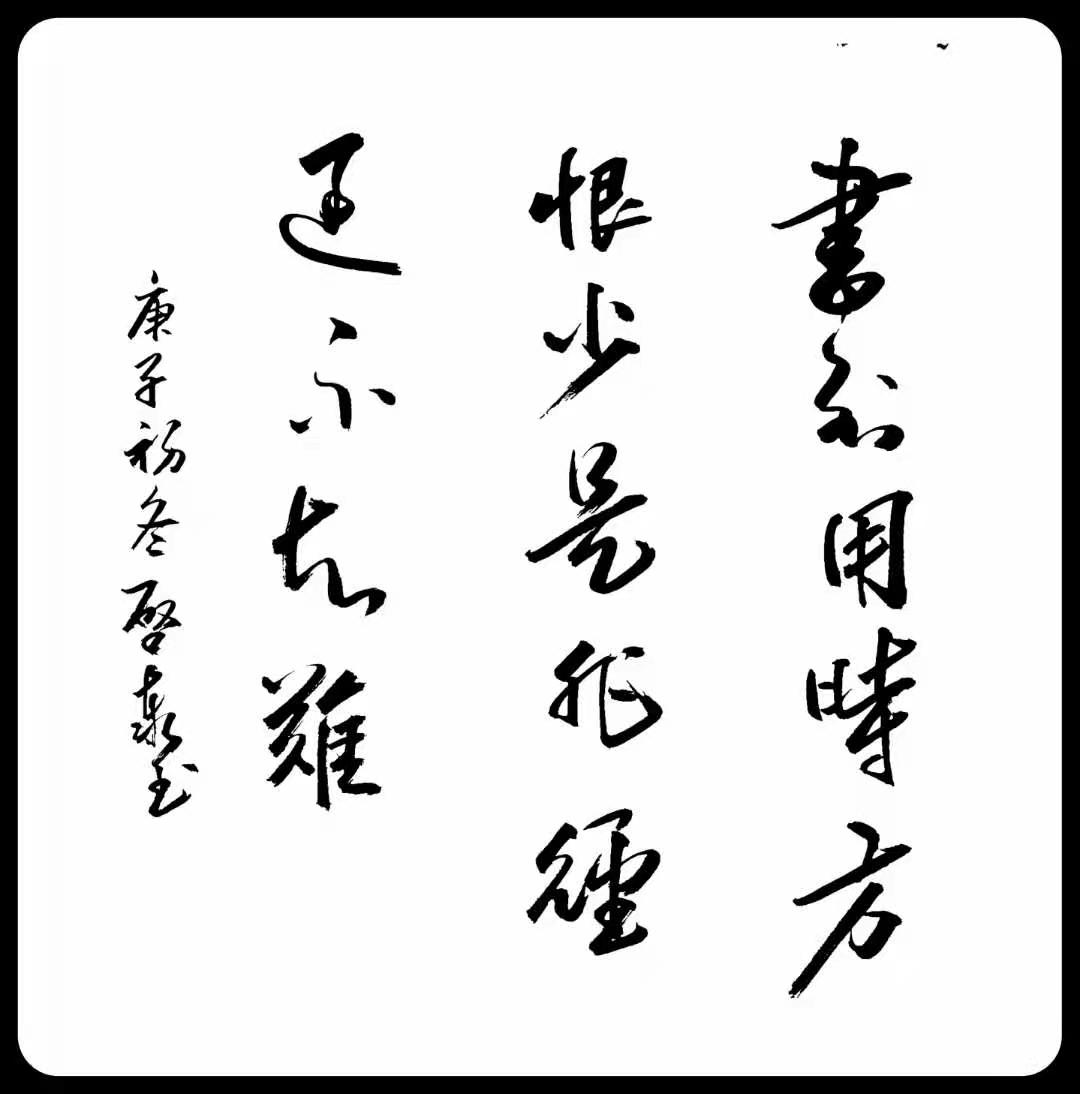 書到用時方
恨少是非經
過不知難
庚子初冬啓泰玉